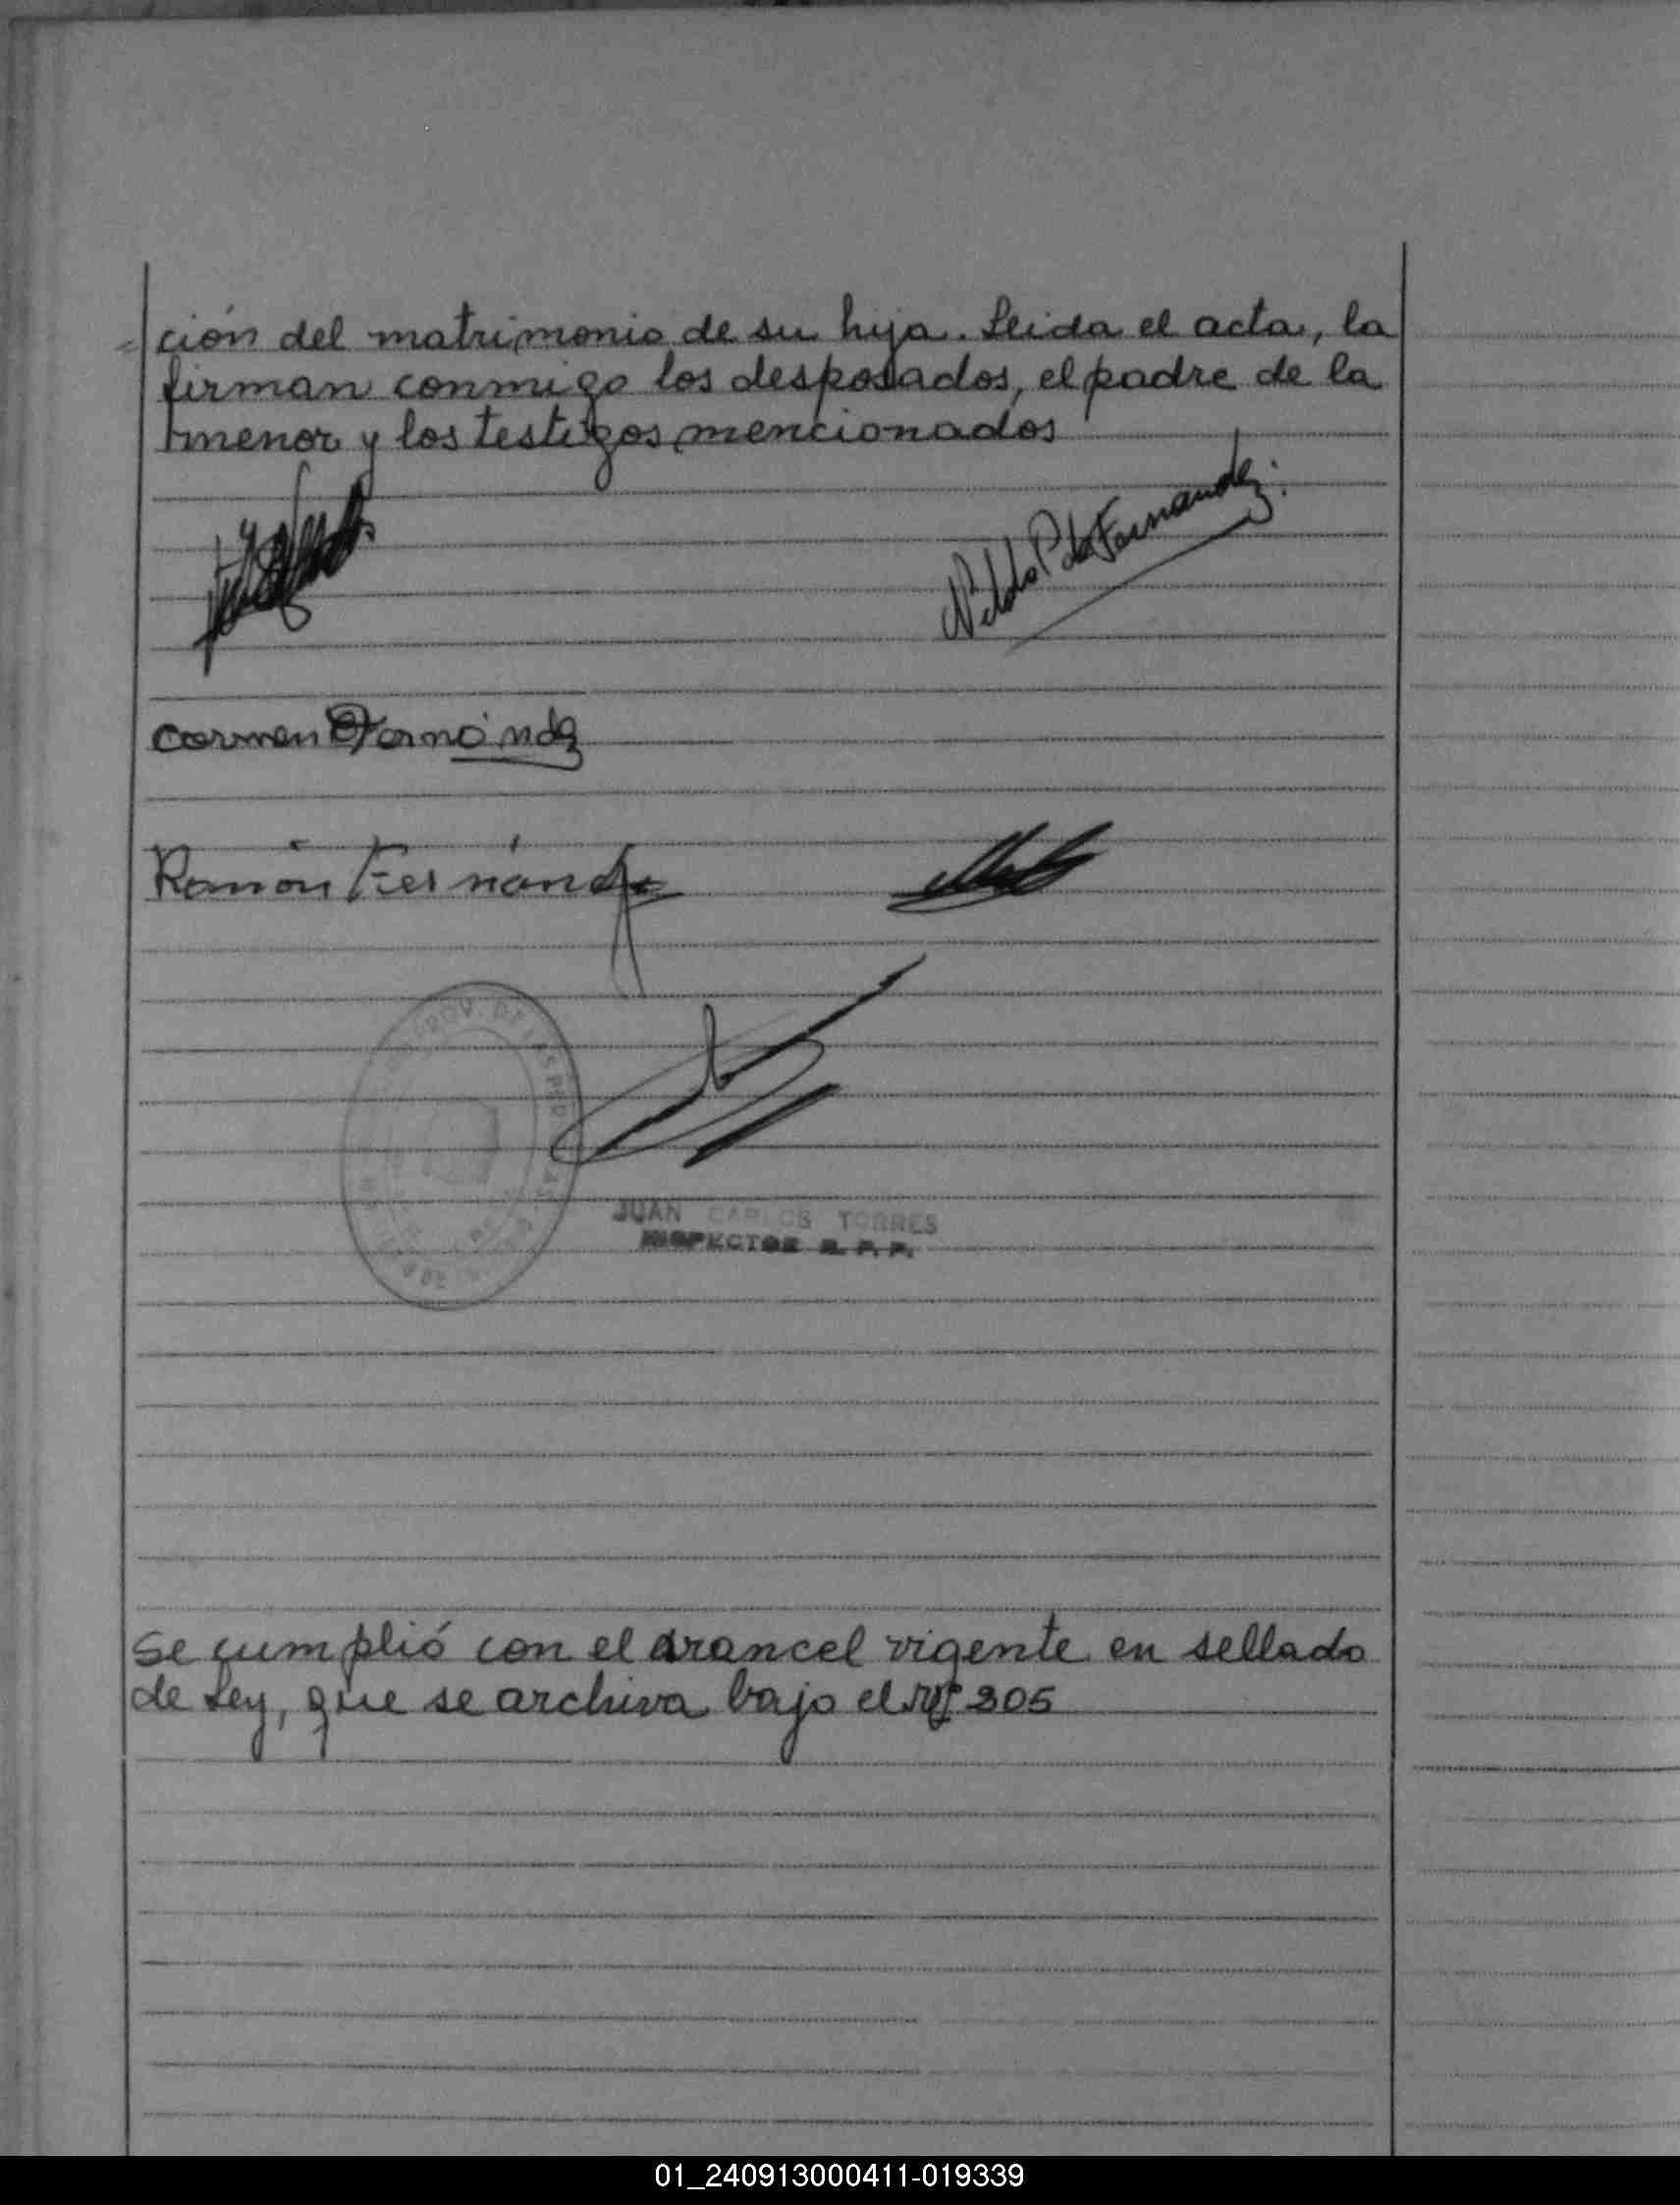 =ción del matrimonio de su hija. Leida el acta, la
firman conmigo los desposados, el padre de la
menor y los testigos mencionados
Nilda P. de Fernandez.
Carmen Fernández
Ramón Fernández
JUAN CARLOS TORRES
INSPECTOR R. P. P.
Se cumplió con el arancel vigente en sellado
de Ley, que se archiva bajo el Nº 305
01_240913000411-019339